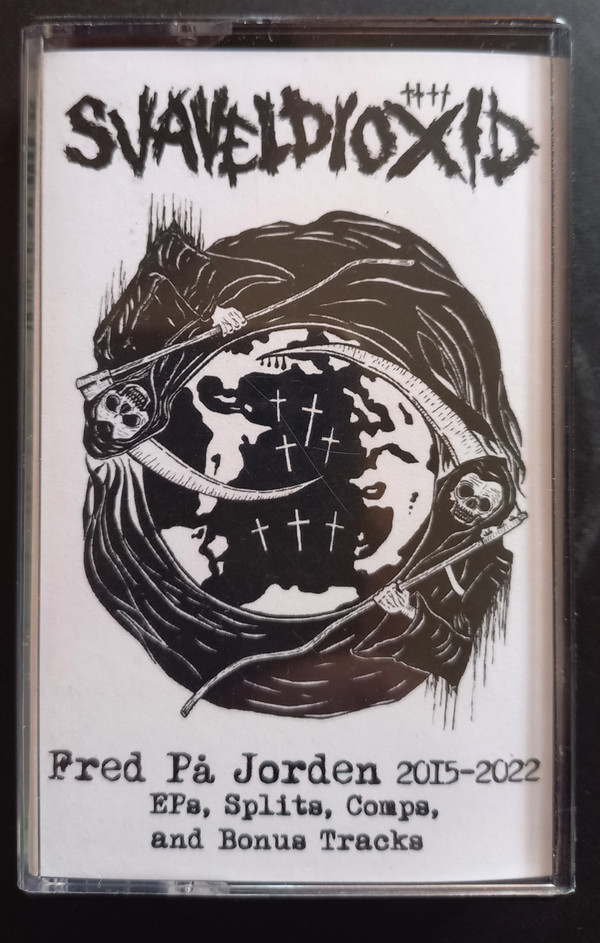 SVAVELDIOXID
Fred På Jorden 2015-2022
EPs, Splits, Comps,
and Bonus Tracks